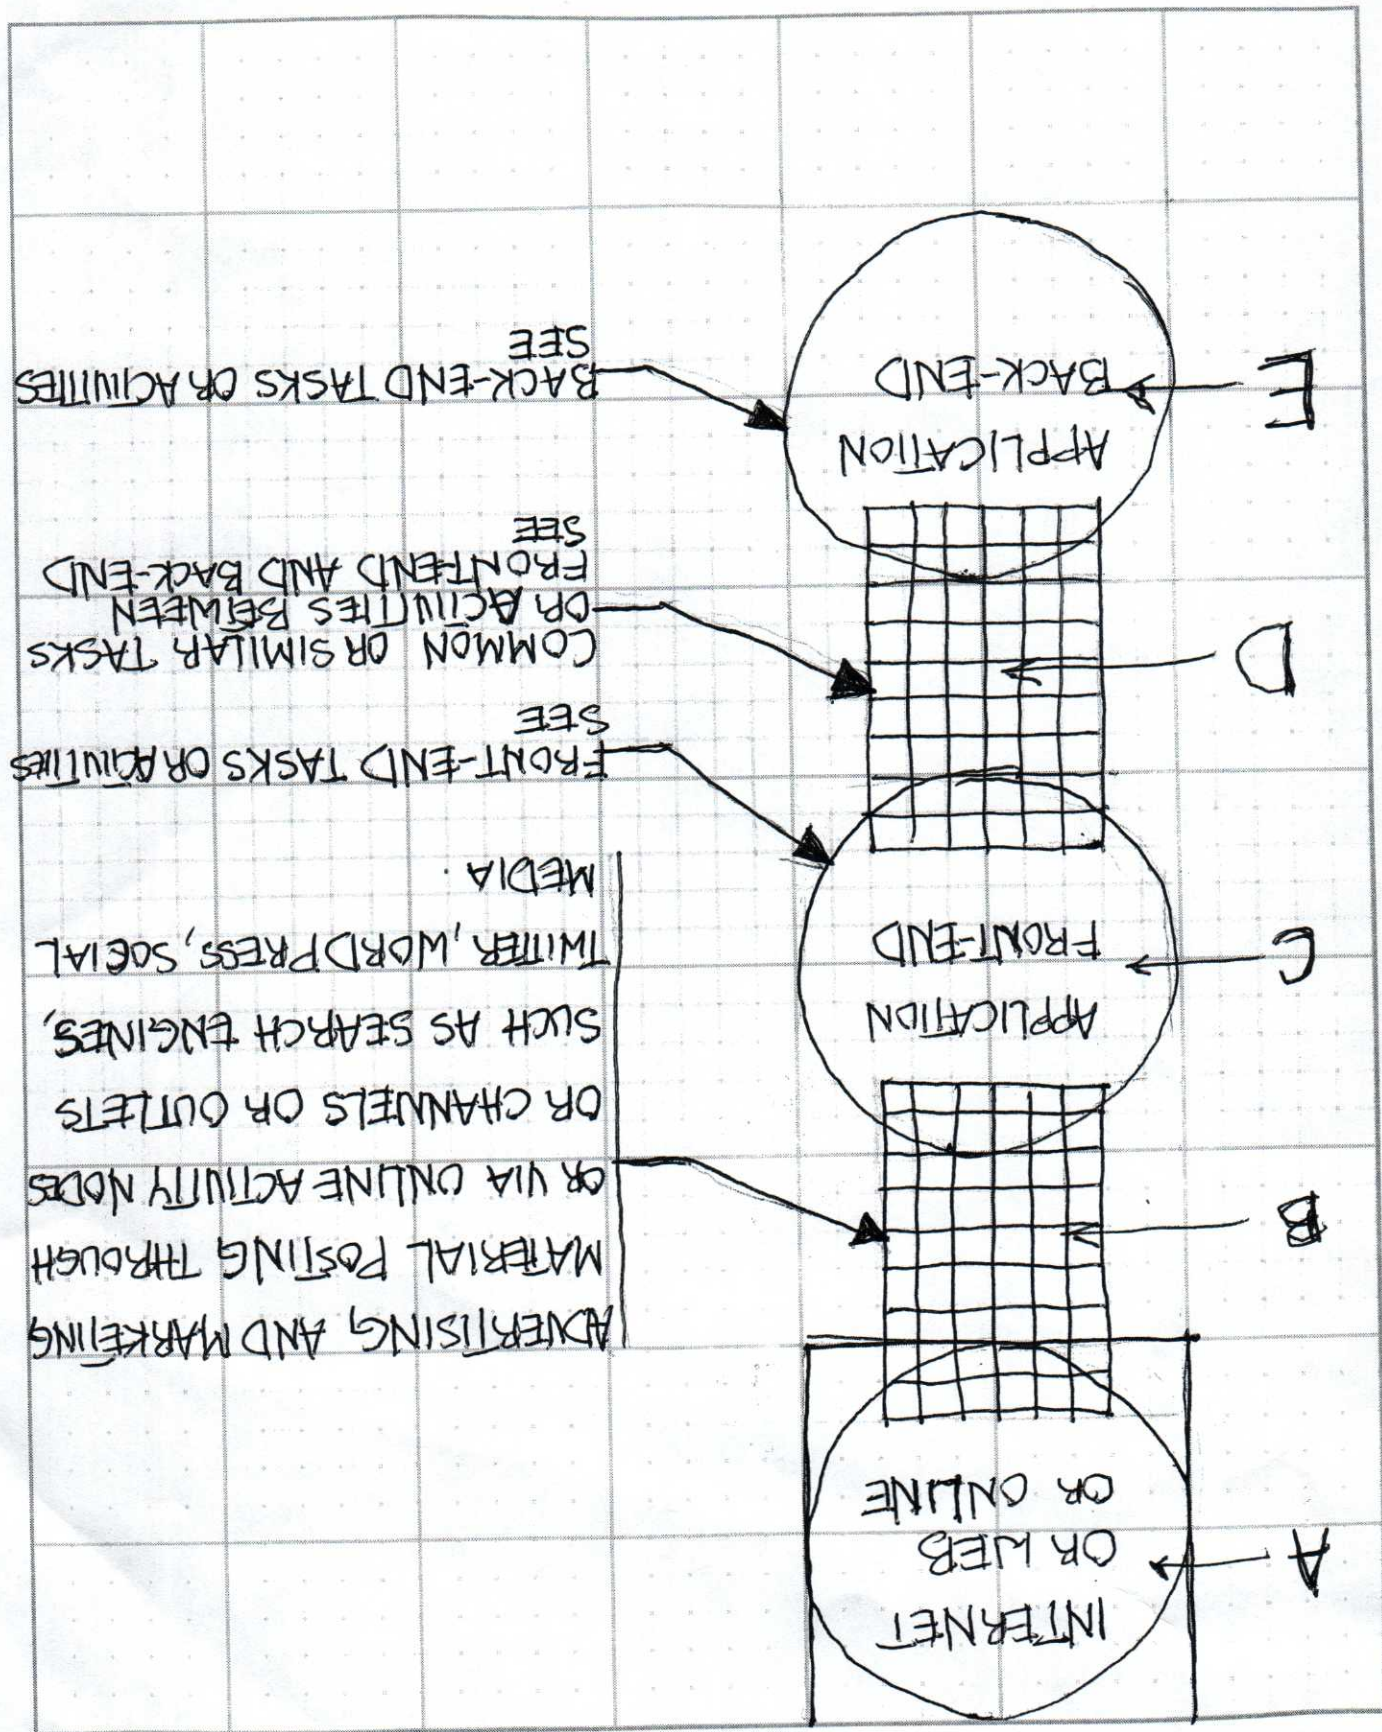 A
INTERNET
OR WEB
OR ONLINE
B
ADVERTISING, AND MARKETING
MATERIAL POSTING THROUGH
OR VIA ONLINE ACTIVITY NODES
OR CHANNELS OR OUTLETS
SUCH AS SEARCH ENGINES,
TWITTER, WORDPRESS, SOCIAL
MEDIA.
C
APPLICATION
FRONT-END
FRONT-END TASKS OR ACTIVITIES
SEE
D
COMMON OR SIMILAR TASKS
OR ACTIVITIES BETWEEN
FRONT-END AND BACK-END
SEE
E
APPLICATION
BACK-END
BACK-END TASKS OR ACTIVITIES
SEE